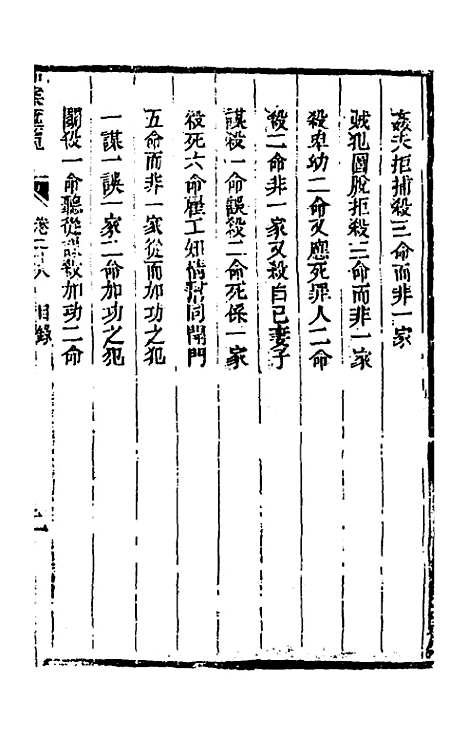 姦夫拒捕殺三命而非一家
賊犯圖脫拒殺三命而非一家
殺卑幼二命又應死罪人二命
殺二命非一家又殺自己妻子
謀殺一命誤殺二命死係一家
殺死六命雇工知情幫同開門
五命而非一家從而加功之犯
一謀一誤一家二命加功之犯
鬬殺一命聽從謀殺加功二命
卷二十八 目錄